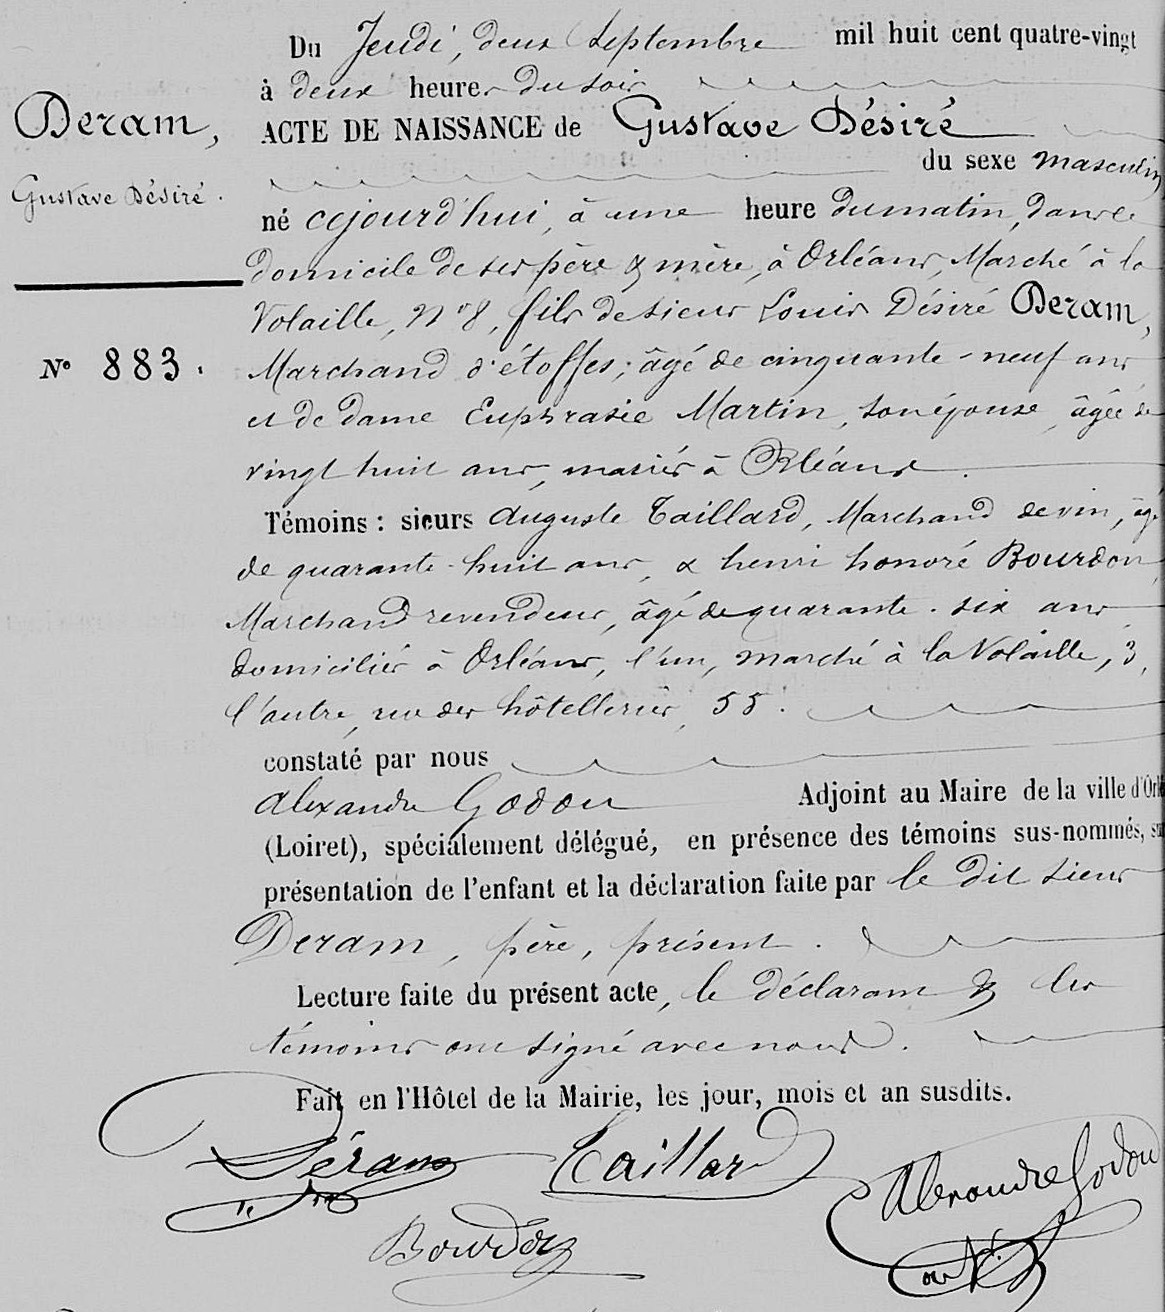 Du Jeudi, deux Septembre mil huit cent quatre-vingt
à deux heures du soir
Deram,
ACTE DE NAISSANCE de Gustave Désiré
du sexe masculin
Gustave Désiré.
né cejourd'hui, à une heure du matin, dans le
domicile de ses père & mère, à Orléans, Marché à la
Volaille, n° 8, fils de sieur Louis Désiré Deram,
N° 883.
Marchand d'étoffes, âgé de cinquante-neuf ans
et de dame Euphrasie Martin, son épouse, âgée de
vingt huit ans, mariés à Orléans.
Témoins : sieurs Auguste Taillard, Marchand de vin, âgé
de quarante-huit ans, & henri honoré Bourdon,
Marchand revendeur, âgé de quarante-six ans
domiciliés à Orléans, l'un, marché à la Volaille, 3,
l'autre, rue des hôtelleries, 55.
constaté par nous
Alexandre Godou Adjoint au Maire de la ville d'Orlé
(Loiret), spécialement délégué, en présence des témoins sus-nommés, sur
présentation de l'enfant et la déclaration faite par le dit sieur
Deram, père, présent.
Lecture faite du présent acte, le déclarant & les
témoins ont signé avec nous.
Fait en l'Hôtel de la Mairie, les jour, mois et an susdits.
Déram Taillard Alexandre Godou
Bourdon